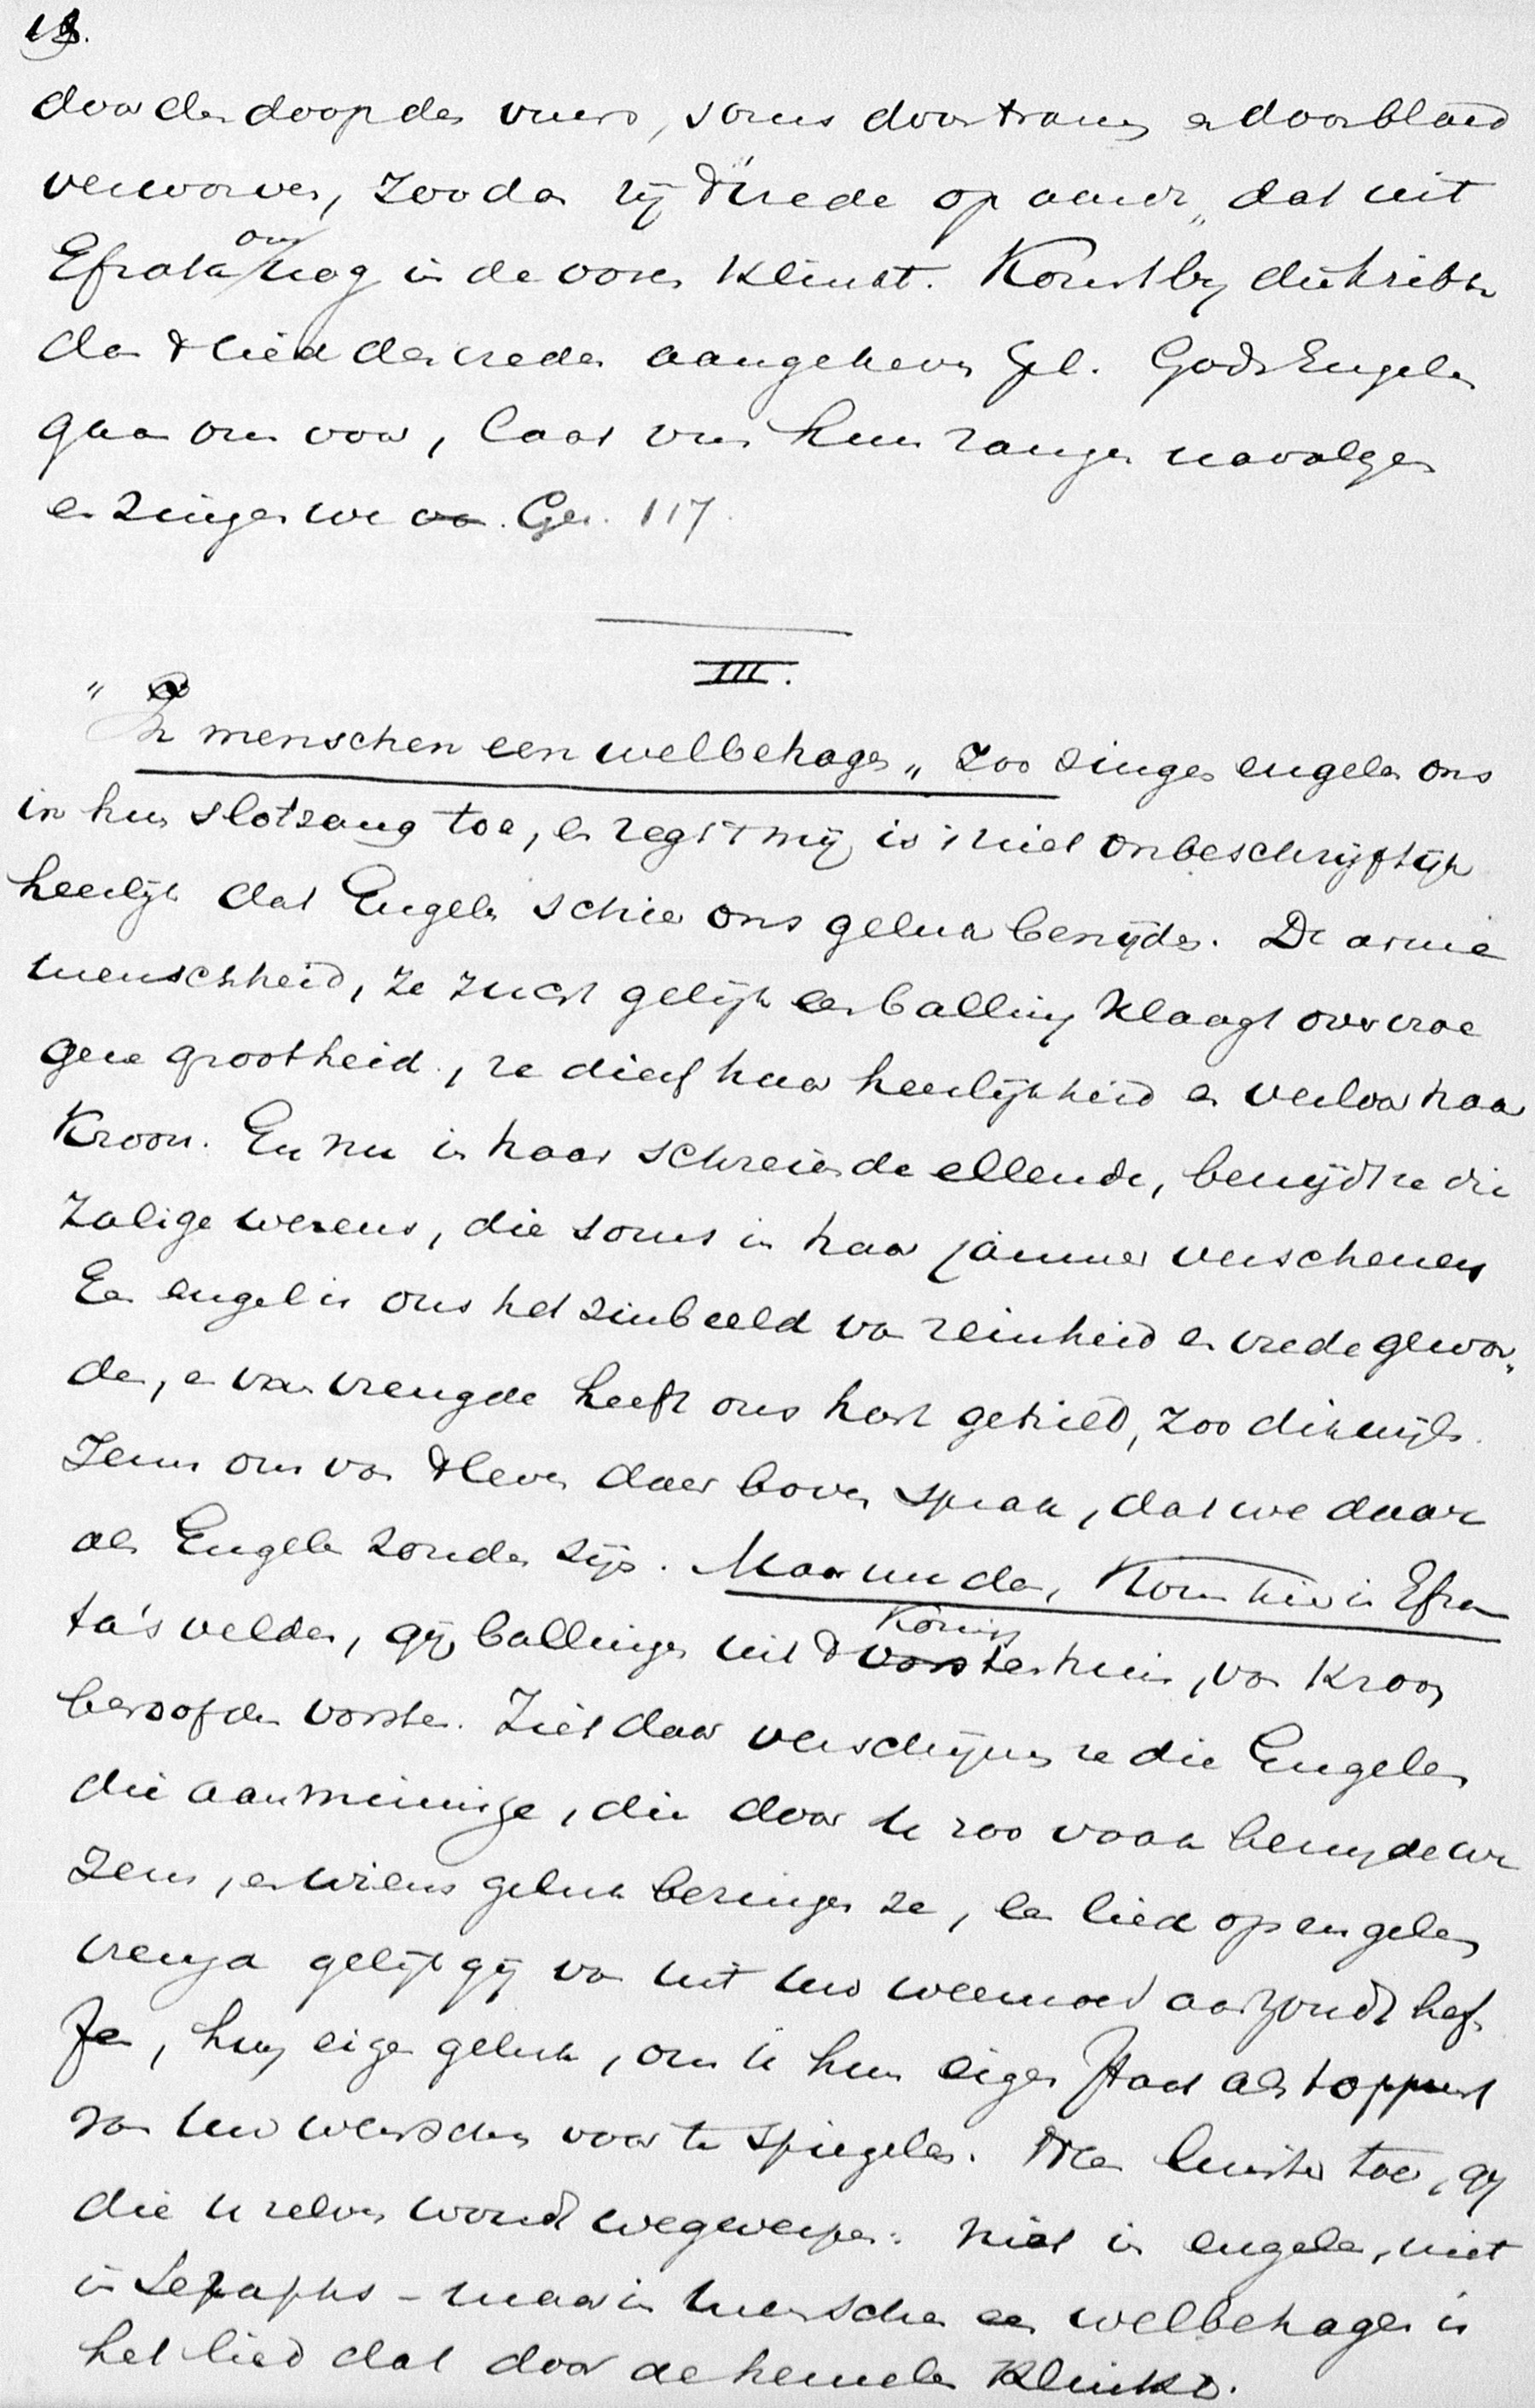 13.
door den doop des vuurs, soms door traan en door bloed
verworven, zoodat zij 't "vrede op aarde" dat uit
Efrata ons nog in de ooren klinkt. Komt bij die kribbe
dan 't lied des vredes aangeheven Gel. Gods Engelen
gaan ons voor, laat ons hun zangen navolgen
en zingen we Gez. 117.
III.
"In menschen een welbehagen" Zoo zingen engelen ons
in hun slotzang toe, en zegt mij is 't niet onbeschrijflijk
heerlijk dat Engelen schier ons geluk benijden. De arme
menschheid, ze zucht gelijk een balling klaagt over vroe
gere grootheid, ze dierf haar heerlijkheid en verloor haar
Kroon. En nu in haar schreiende ellende, benijdt ze die
Zalige wezens, die soms in haar jammer verschenen
Een engel is ons het zinbeeld van reinheid en vrede gewor-
den, en van vreugde heeft ons hart getrild, zoo dikwijls
Jezus ons van 't leven daar boven sprak, dat we daar
als Engelen zouden zijn. Maar nu dan, Kom hier in Efra
ta's velden, gij ballingen uit 't Konings vorstenhuis, van Kroon
beroofde vorsten. Ziet daar verschijnen ze die Engelen
die aanminnige, die door u zoo vaak benijde we
zens, en wiens geluk bezingen ze, een lied op engelen
vreugd gelijk gij van uit uw weemoed aanzondt hef
fen, hun eigen geluk, om u hun eigen staat als toppunt
van uw wenschen voor te spiegelen. Neen luister toe, gij
die u zelven woudt wegwerpen: niet in engelen, niet
in Serafs - maar in menschen een welbehagen is
het lied dat door de hemelen klinkt.